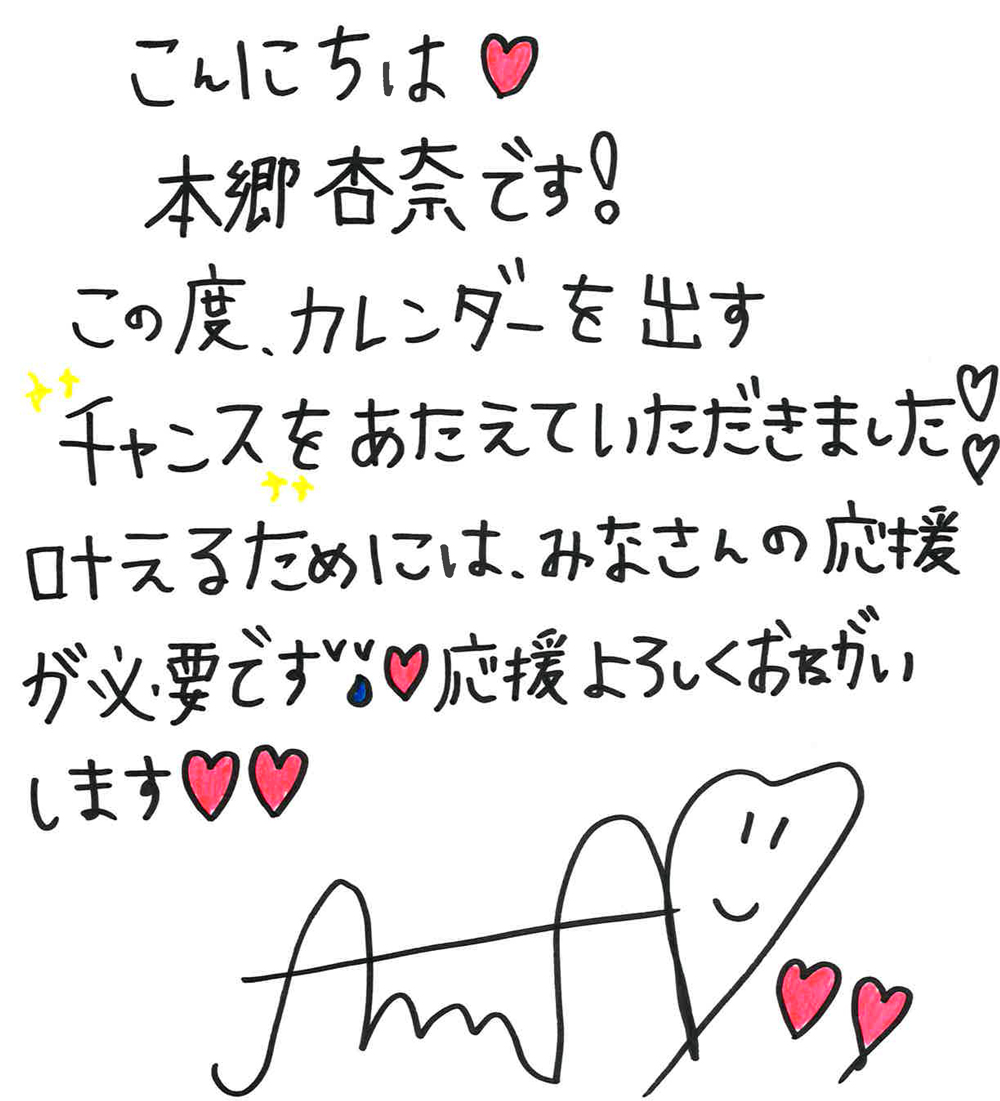 こんにちは♥
本郷杏奈です!
この度、カレンダーを出す
チャンスをあたえていただきました♡♡
叶えるためには、みなさんの応援
が必要です♥応援よろしくおねがい
します♥♥